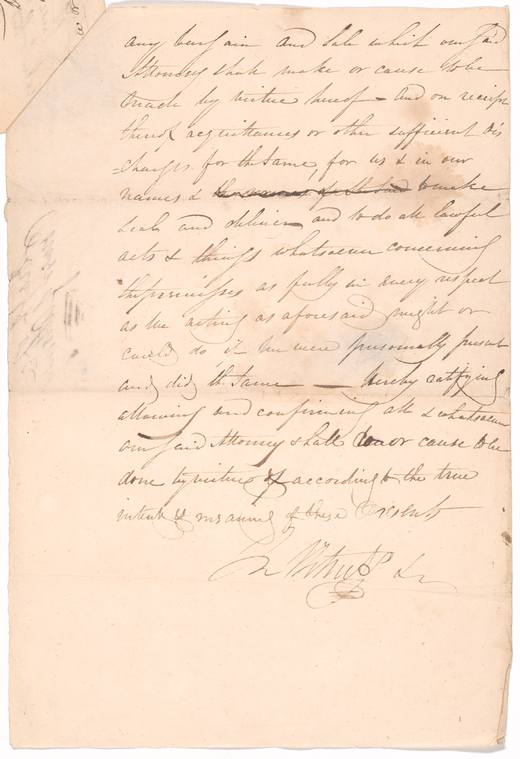 any bargain and Sale which our said
Attorney shall make or cause to be
made by virtue hereof – and on receipt
thereof acquittances or other sufficient dis
-charges for the Same, for us & in our
names & to make
Seal and deliver and to do all lawful
acts & things whatsoever concerning
the premises as fully in every respect
as we acting as aforesaid might or
could do if we were personally present
and did the Same — hereby ratifying
allowing and confirming all & whatsoever
our said Attorney shall do or cause to be
done by virtue & according to the true
intent & meaning of these Presents
In Witness &c